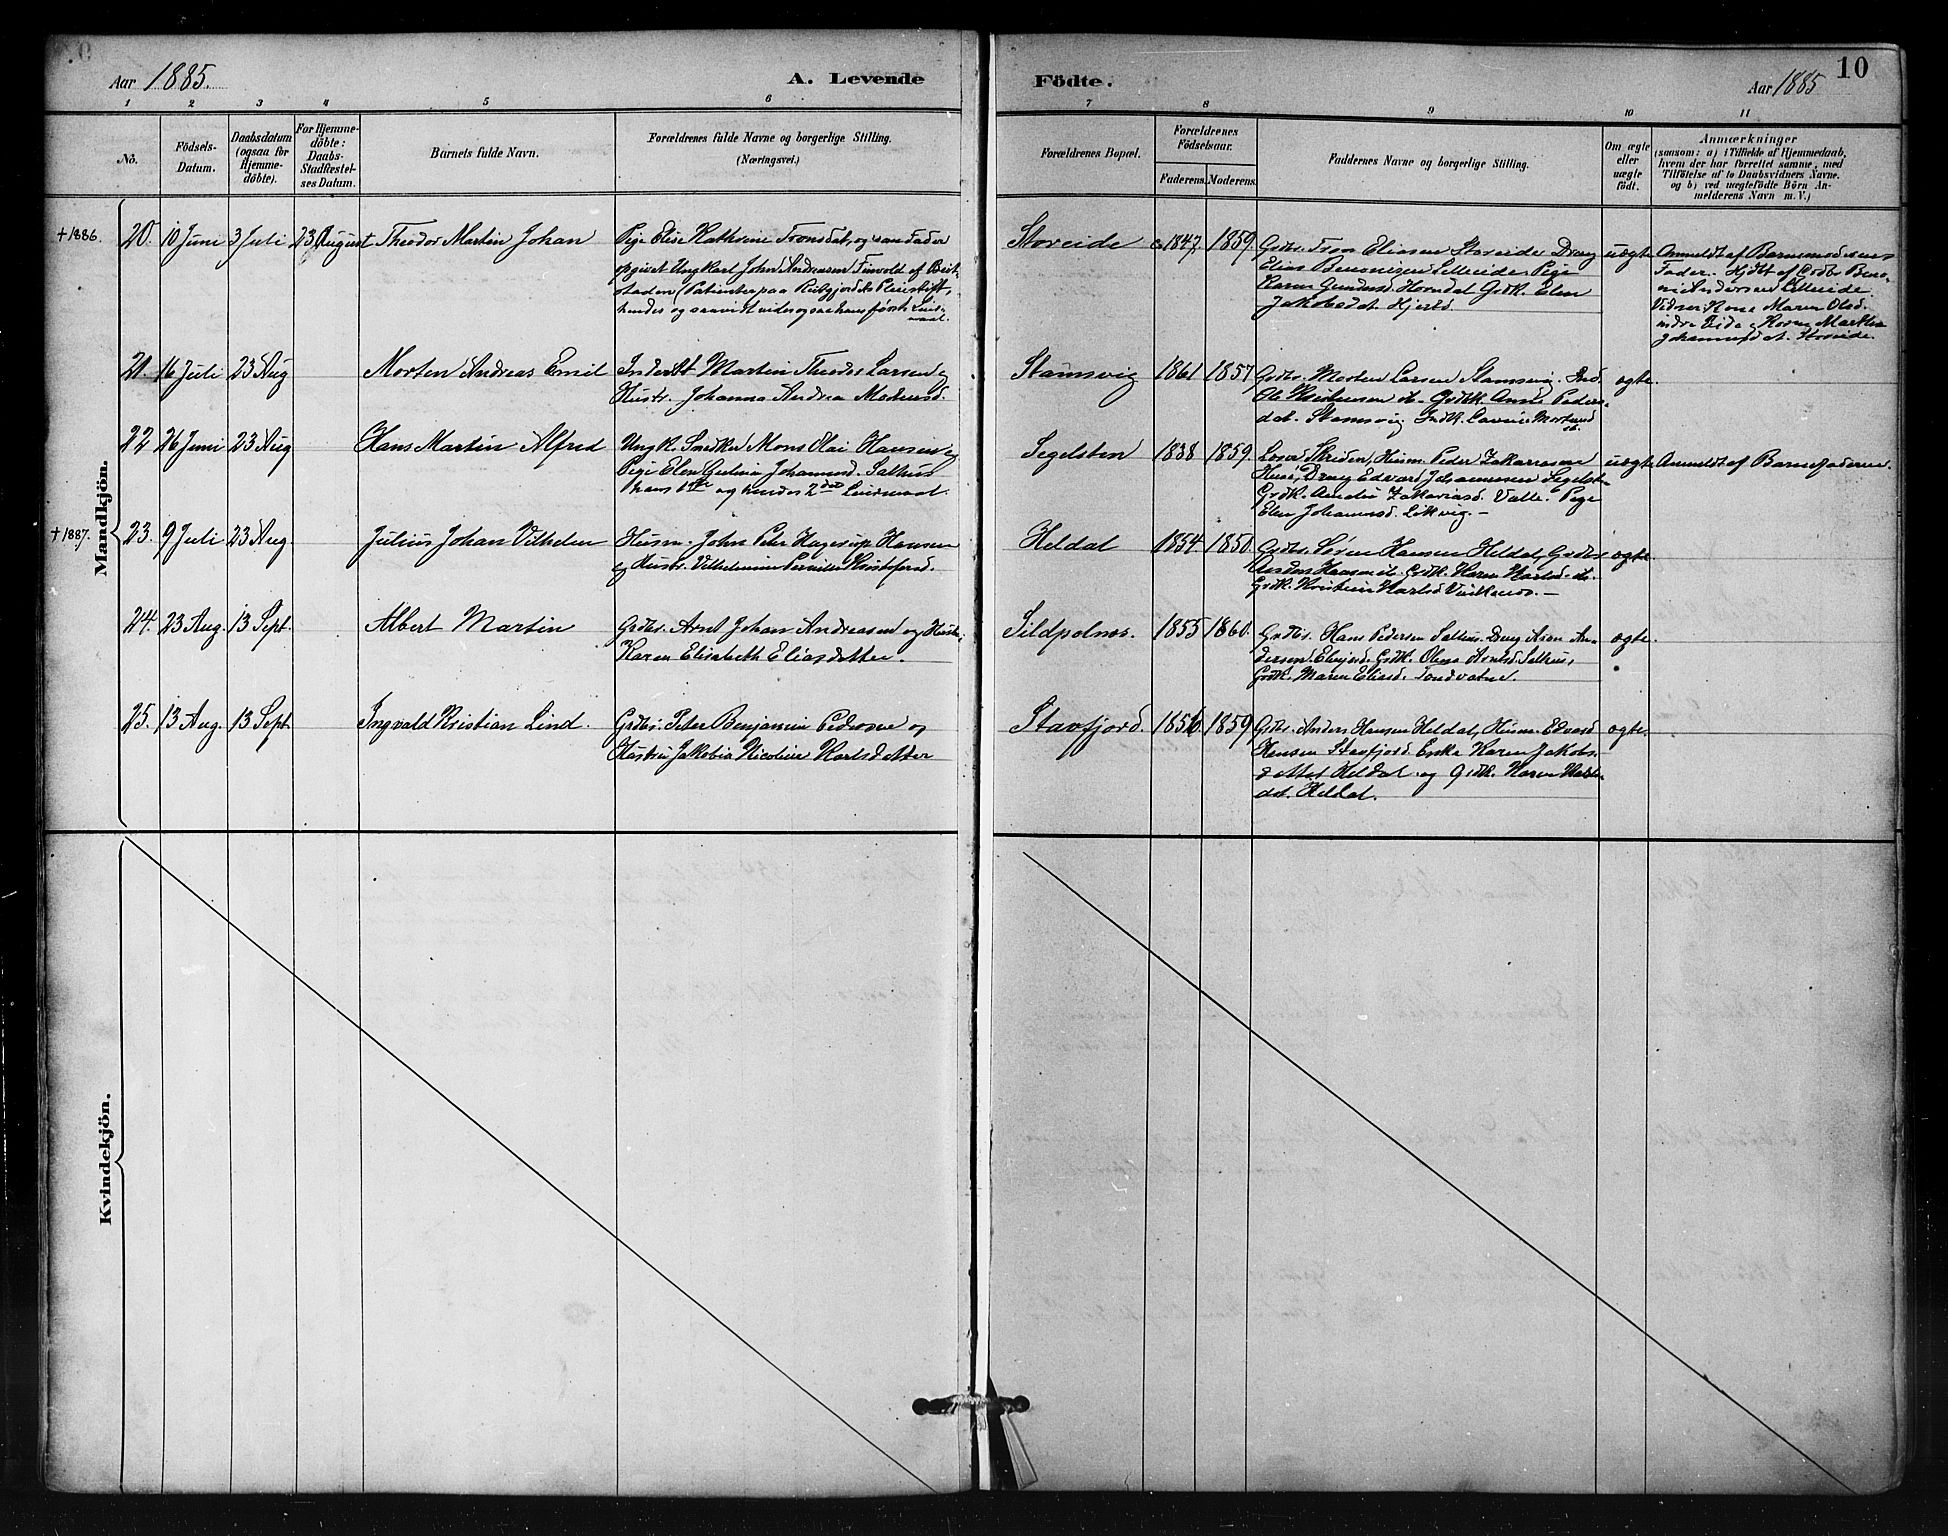 Aar 1885.
A. Levende
Födte.
Aar 1885
10
1 2 3 4 5 6 7 8 9 10 11
No.
Födsels-
Datum.
Daabsdatum
(ogsaa for
Hjemme-
döbte).
For Hjemme-
döbte:
Daabs-
Stadfæstel-
ses Datum.
Barnets fulde Navn.
Forældrenes fulde Navne og borgerlige Stilling.
(Næringsvei.)
Forældrenes Bopæl.
Forældrenes
Födselsaar.
Faderens. Moderens.
Faddernes Navne og borgerlige Stilling.
Om ægte
eller
uægte
födt.
Anmærkninger
(saasom: a) i Tilfælde af Hjemmedaab,
hvem der har forrettet samme, med
Tilföielse af to Daabsvidners Navne.
og b) ved uægtefödte Börn An-
melderens Navn m. V.)
Mandkjön.
+1886. 20. 10 Juni 3 Juli 23 August Theodor Martin Johan
Pige Elise Kathrine Tronsdat, og som Fader
opgivet Ungkarl John Andreasen Finvold af Beit-
staden (Patienter paa Reitgjerdets Pleiestift,
hendes og saavidt vides ogsaa hans første Leier-
maal.
Storeide 1847 1859.
Grdbr. Tron Eliassen Storeide Dreng
Elias Benonisen Lilleeide Pige
Karen Gundersd. Horndal Grdk. Elen
Jakobsdat. Hjerto.
uægte
Anmeldt af Barnemoderens
Fader. Hjdt af Grdbr Beno-
ni Andersen Lilleeide
Vidner Kone Maren Olsd.
indre Eide, Kone Marthe
Johannesdat. Storeide.
21. 16 Juli 23 Aug Morten Andreas Emil
Inderst Martin Theodor Larsen og
Hustr. Johanna Andrea Mortensd.
Stamsvig 1861 1857
Grdbr. Morten Larsen Stamsvig. Ind.
Ole Kristensen st. Grdk. Anne Peders-
dat. Stamsvig Indk. Mortensd
st.
ægte.
22 26 Juni 23 Aug Hans Martin Alfred
Ungk. Snedker Mons Olai Hansen og
Pige Elen Johannesd. Salthus
hans 1ste og hendes 2det Leiermaal.
Segelsten 1838 1859.
Skriden, Husm. Peder Zakariasen
Dreng Edvard Johannesen Segelst.
Grdk. Zakariasd. Valle. Pige
Elen Johannesd. Likvig. –
uægte Anmeldt af Barnefaderen.
+1887. 23. 9 Juli 23 Aug Julius Johan Vilhelm
Husm. John Peter Hagerup Hansen
og Hustr. Vilhelmine Pernille Kristofersd.
Heldal 1854 1850.
Grdbr. Søren Hansen Heldal, Grdbr
Anders Hansen st. Grdk. Karen Karlsd. st.
Grdk. Kristine Karlsd Vinkenes. –
ægte.
24. 23 Aug. 13 Sept. Albert Martin
Grdbr. Arnt Johan Andreasen og Hustr.
Karen Elisabeth Eliasdatter.
Sildpolnes. 1855 1860.
Grdbr. Hans Pedersen Salthus. Dreng Aron An-
dersen Elvejord. Grdk. Olena Arntsd. Salthus,
Grdk. Maren Eliasd. Sandvatne.
ægte.
25. 13 Aug. 13 Sept. Ingvald Kristian Lind.
Grdbr. Peter Benjamin Pedersen og
Hustru Jakobia Nicoline Karlsdatter
Stavfjord. 1856 1859
Grdbr. Anders Hansen Heldal, Husm. Edvard
Hansen Stavfjord. Enke Karen Jakobs-
datter Heldal. og Grdk. Karen Karls-
dat. Heldal.
ægte.
Kvindekjön.